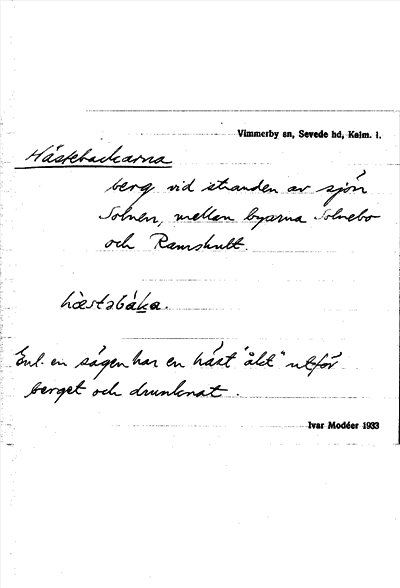 Vimmerby sn, Sevede hd, Kalm. l.
Hästebackarna
berg vid stranden av sjön
Solnen, mellan byarna Solnebo
och Ramshult.
hæstabaka.
Enl. en sägen har en häst "åkt" utför
berget och drunknat.
Ivar Modéer 1933